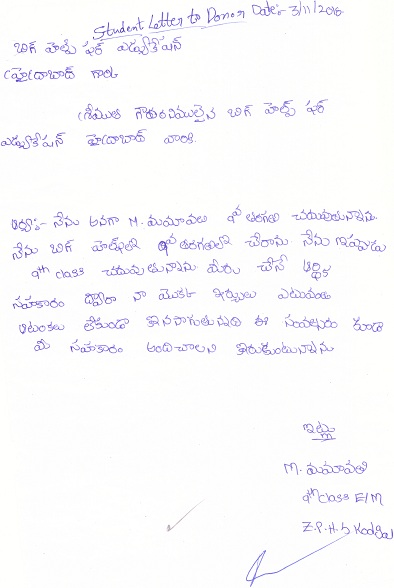 Student Letter to Donor Date:- 3/11/2016
బిగ్ హెల్ప్ ఫర్ ఎడ్యుకేషన్
హైదరాబాద్ గారి
శ్రీయుత గౌరవనీయులైన బిగ్ హెల్ప్ ఫర్
ఎడ్యుకేషన్ హైదరాబాద్ వారికి.
నేను అనగా M. 9వ తరగతి చదువుతున్నాను.
నేను బిగ్ హెల్ప్‌లో 9వ తరగతిలో చేరాను నేను ఇప్పుడు
9th class చదువుతున్నాను మీరు చేసే ఆర్థిక
సహకారం ద్వారా నా యొక్క ఎటువంటి
ఆటంకలు లేకుండా కొనసాగుతున్నది ఈ సంవత్సరం కూడా
మీ సహకారం అందించాలని కోరుకుంటున్నాను
ఇట్లు
M.
9th class E/M
Z.P.H.S